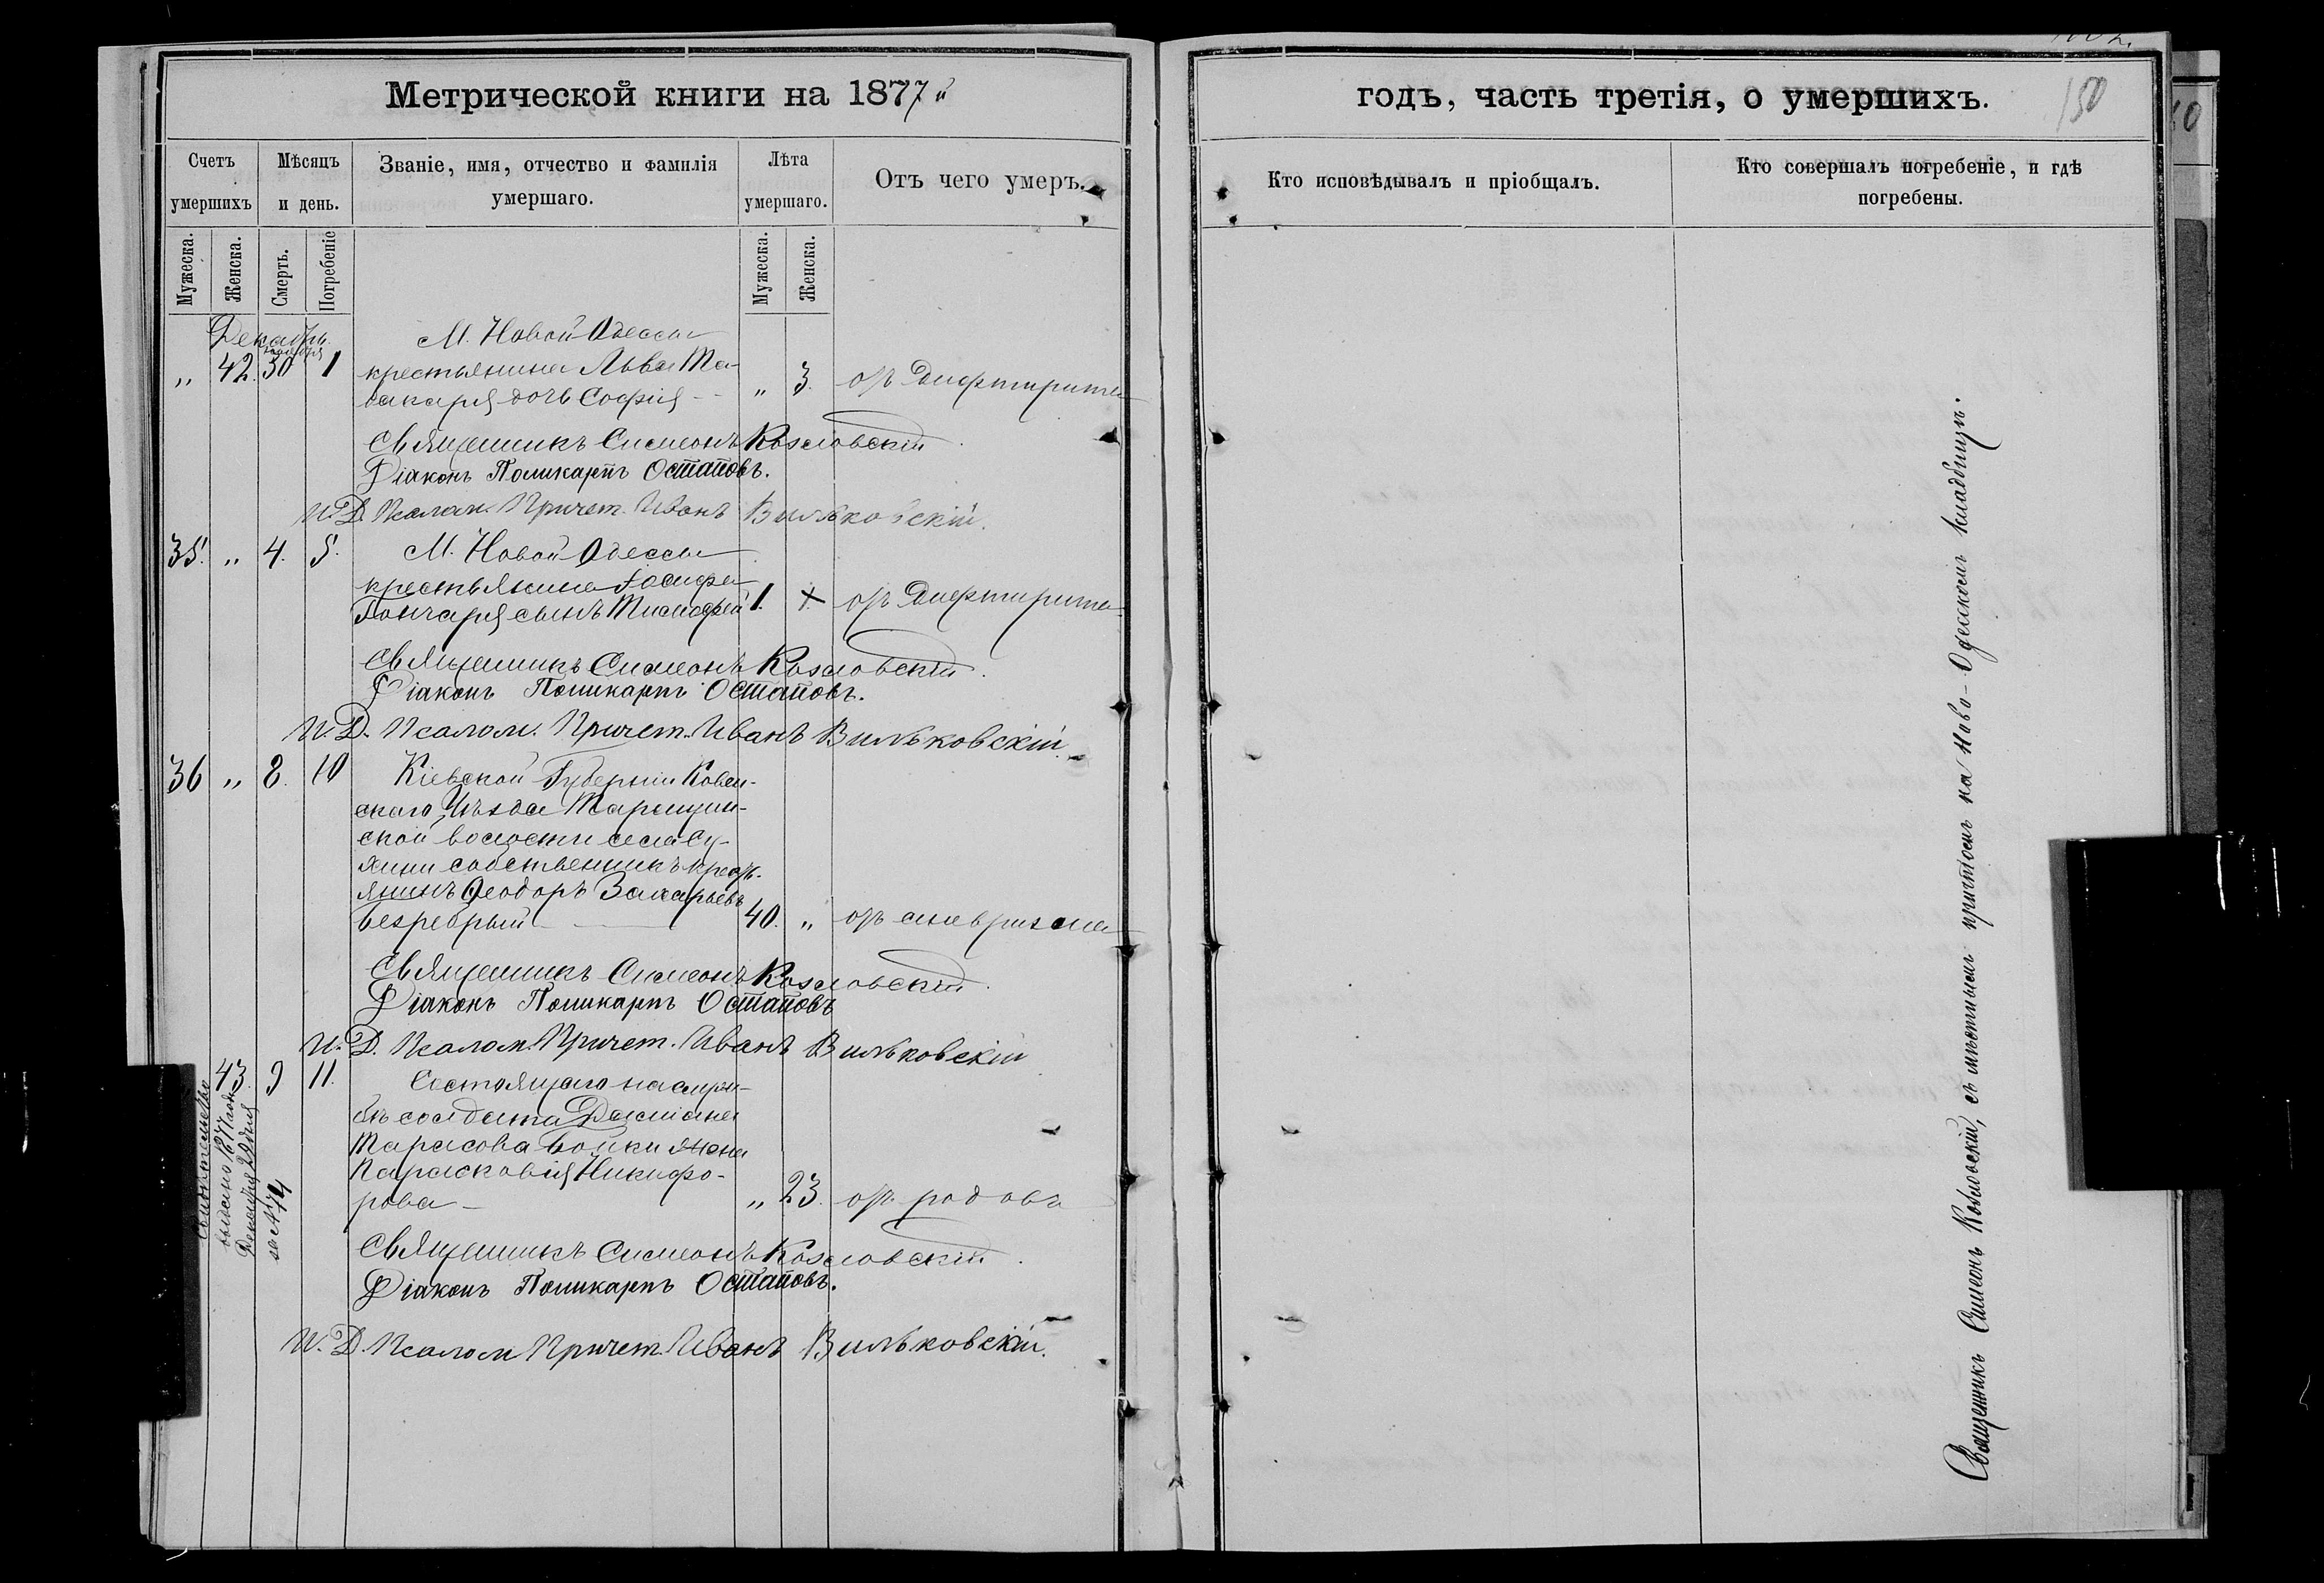 Метрической книги на 1877й
годъ, часть третія, о умершихъ.
150
Счетъ умершихъ
Мѣсяцъ и день.
Званіе, имя, отчество и фамилія умершаго.
Лѣта умершаго.
Отъ чего умеръ.
Кто исповѣдывалъ и пріобщалъ.
Кто совершалъ погребеніе, и гдѣ погребены.
Мужеска.
Женска.
Смерть.
Погребеніе
Мужеска.
Женска.
Декабрь
ноября
М. Новой Одессы
„ 42. 30 1 крестьянина Льва Та-
бакаря дочь Софія „ 3. отъ дифтирита
Священникъ Симеонъ Козловскій.
Діаконъ Поликарпъ Остаповъ.
И. Д. Псалом. Причет. Иванъ Вильковскій.
35. „ 4. 5. М. Новой Одессы
крестьянина Іосифа
Гончаря сынъ Тимофей 1. отъ дифтирита
Священникъ Симеонъ Козловскій.
Діаконъ Поликарпъ Остаповъ.
И. Д. Псалом. Причет. Иванъ Вильковскій.
36 „ 8. 10 Кіевской Губерніи
скаго Уѣзда Таращан-
ской волости села
собственникъ крест-
янинъ Ѳеодоръ Захарьевъ
40. „ отъ аневризма
Священникъ Симеонъ Козловскій.
Діаконъ Поликарпъ Остаповъ
И. Д. Псалом. Причет. Иванъ Вильковскій
43. 9 11. Состоящаго на служ-
бѣ солдата Даміана
Тарасова Бойки жена
Парасковія Никифо-
рова „ 23. отъ родовъ
выдано 1877 года
Декабря 29 дня
за №
Священникъ Симеонъ Козловскій.
Діаконъ Поликарпъ Остаповъ.
И. Д. Псалом Причет. Иванъ Вильковскій.
Священникъ Симеонъ Козловскій, съ мѣстнымъ причтомъ на Ново-Одесскомъ кладбищѣ.